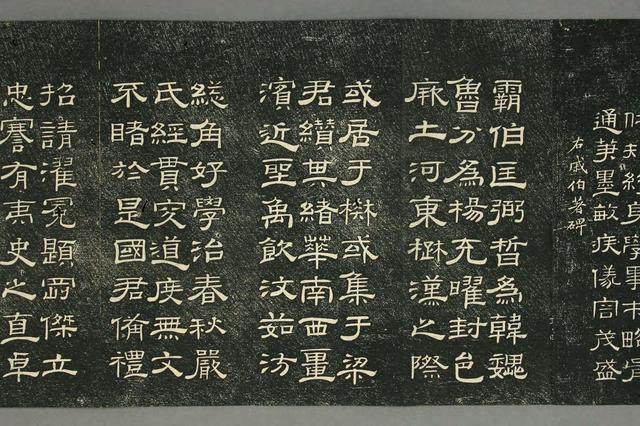 身學
通墨敏疾儀茂盛
右戚伯著碑
霸伯匡弼哲為韓魏
魯分為楊充曜封邑
厥土河東楙漢之際
或居于楙或集于梁
君纘其緒華南西畺
濱近聖禹飲汶茹汸
緫角好學治春秋嚴
氏經貫究道度無文
不睹於是國君備禮
招請濯冕題剛傑立
忠謇有夷史之直卓